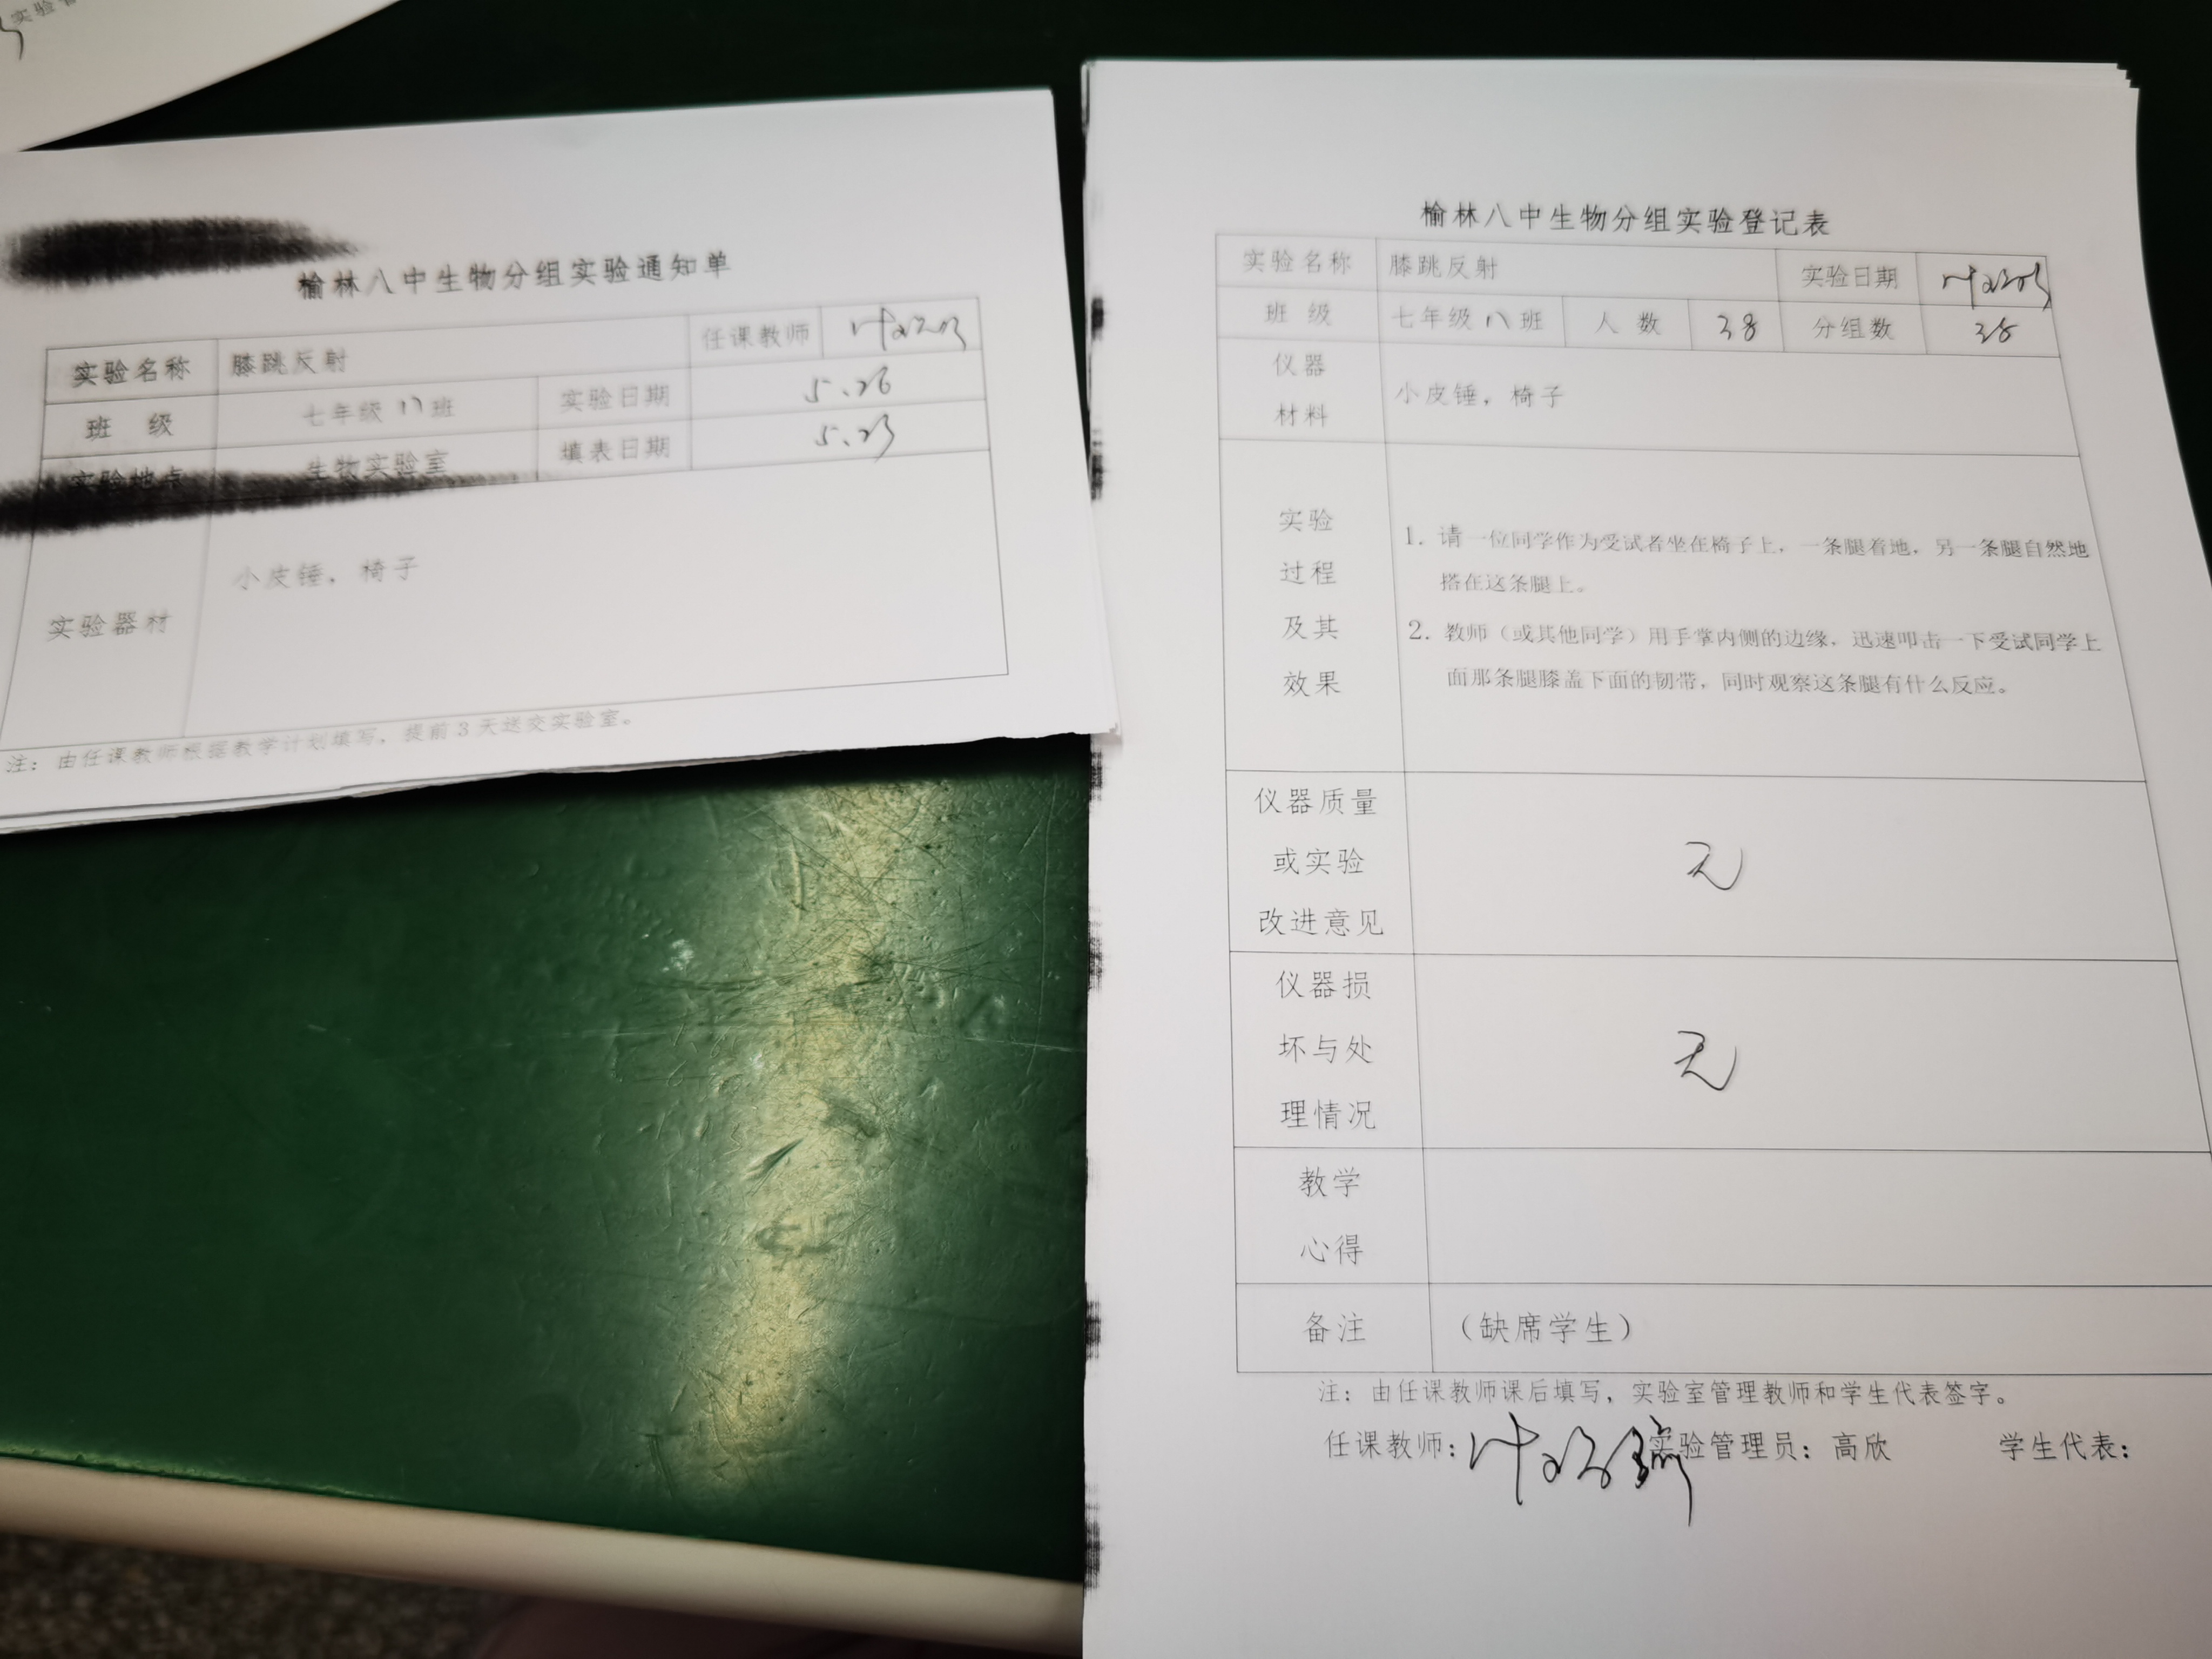 实验
榆林八中生物分组实验通知单
实验名称 膝跳反射 任课教师
班 级 七年级八班 实验日期 5.26
实验地点 生物实验室 填表日期 5.23
实验器材 小皮锤，椅子
注：由任课教师根据教学计划填写，提前3天送交实验室。
榆林八中生物分组实验登记表
实验名称 膝跳反射 实验日期
班 级 七年级八班 人 数 38 分组数 38
仪器
材料
小皮锤，椅子
实验
过程
及其
效果
1. 请一位同学作为受试者坐在椅子上，一条腿着地，另一条腿自然地
搭在这条腿上。
2. 教师（或其他同学）用手掌内侧的边缘，迅速叩击一下受试同学上
面那条腿膝盖下面的韧带，同时观察这条腿有什么反应。
仪器质量
或实验
改进意见
无
仪器损
坏与处
理情况
无
教学
心得
备注 （缺席学生）
注：由任课教师课后填写，实验室管理教师和学生代表签字。
任课教师： 实验管理员：高欣 学生代表：